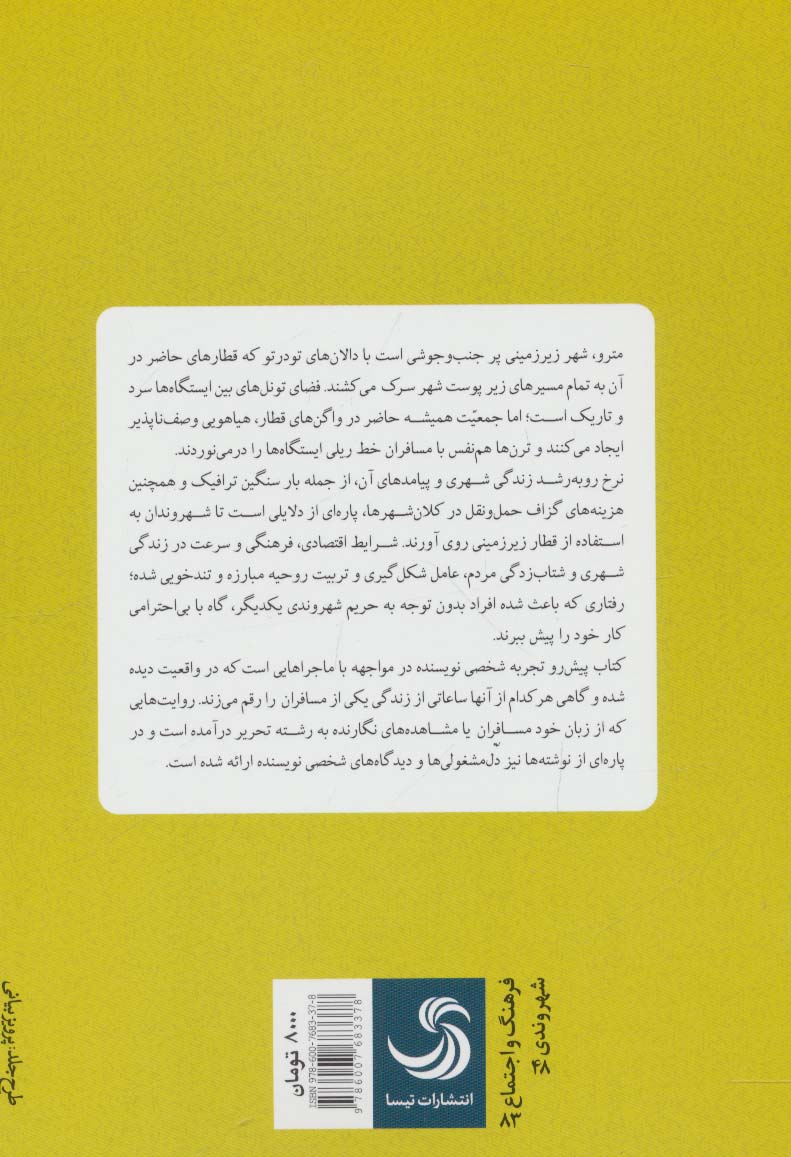 مترو، شهر زیرزمینی پر جنب‌وجوشی است با دالان‌های تودرتو که قطارهای حاضر در
آن به تمام مسیرهای زیر پوست شهر سرک می‌کشند. فضای تونل‌های بین ایستگاه‌ها سرد
و تاریک است؛ اما جمعیّت همیشه حاضر در واگن‌های قطار، هیاهویی وصف‌ناپذیر
ایجاد می‌کنند و ترن‌ها هم‌نفس با مسافران خط ریلی ایستگاه‌ها را درمی‌نوردند.
نرخ روبه‌رشد زندگی شهری و پیامدهای آن، از جمله بار سنگین ترافیک و همچنین
هزینه‌های گزاف حمل‌ونقل در کلان‌شهرها، پاره‌ای از دلایلی است تا شهروندان به
استفاده از قطار زیرزمینی روی آورند. شرایط اقتصادی، فرهنگی و سرعت در زندگی
شهری و شتاب‌زدگی مردم، عامل شکل‌گیری و تربیت روحیه مبارزه و تندخویی شده؛
رفتاری که باعث شده افراد بدون توجه به حریم شهروندی یکدیگر، گاه با بی‌احترامی
کار خود را پیش ببرند.
کتاب پیش‌رو تجربه شخصی نویسنده در مواجهه با ماجراهایی است که در واقعیت دیده
شده و گاهی هر کدام از آنها ساعاتی از زندگی یکی از مسافران را رقم می‌زند. روایت‌هایی
که از زبان خود مسافران یا مشاهده‌های نگارنده به رشته تحریر درآمده است و در
پاره‌ای از نوشته‌ها نیز دل‌مشغولی‌ها و دیدگاه‌های شخصی نویسنده ارائه شده است.
فرهنگ و اجتماع
شهروندی
انتشارات تیسا
۸۰۰۰ تومان
ISBN 978-600-7683-37-8
9 786007 683378
طرح جلد: پرویز بیانی